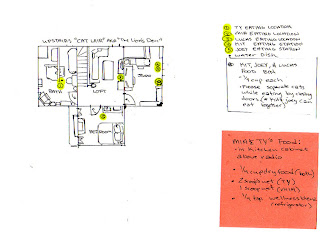 UPSTAIRS "CAT LAIR" AND "The Lion's Den"
BATH
LOFT
STUDIO
BEDROOM
① TY EATING LOCATION
② MIN EATING LOCATION
③ LUCAS EATING LOCATION
④ MIT EATING STATION
⑤ JOEY EATING STATION
WATER DISH
MIT, JOEY, & LUCAS
FOOD
- 1/4 cup each
- Please separate cats
while eating by closing
doors (* mit & joey can
eat together)
MIN & TY'S FOOD:
- in kitchen cabinet
above radio
• 1/4 cup dry food (both)
• 2 scoops wet (TY)
1 scoop wet (MIN)